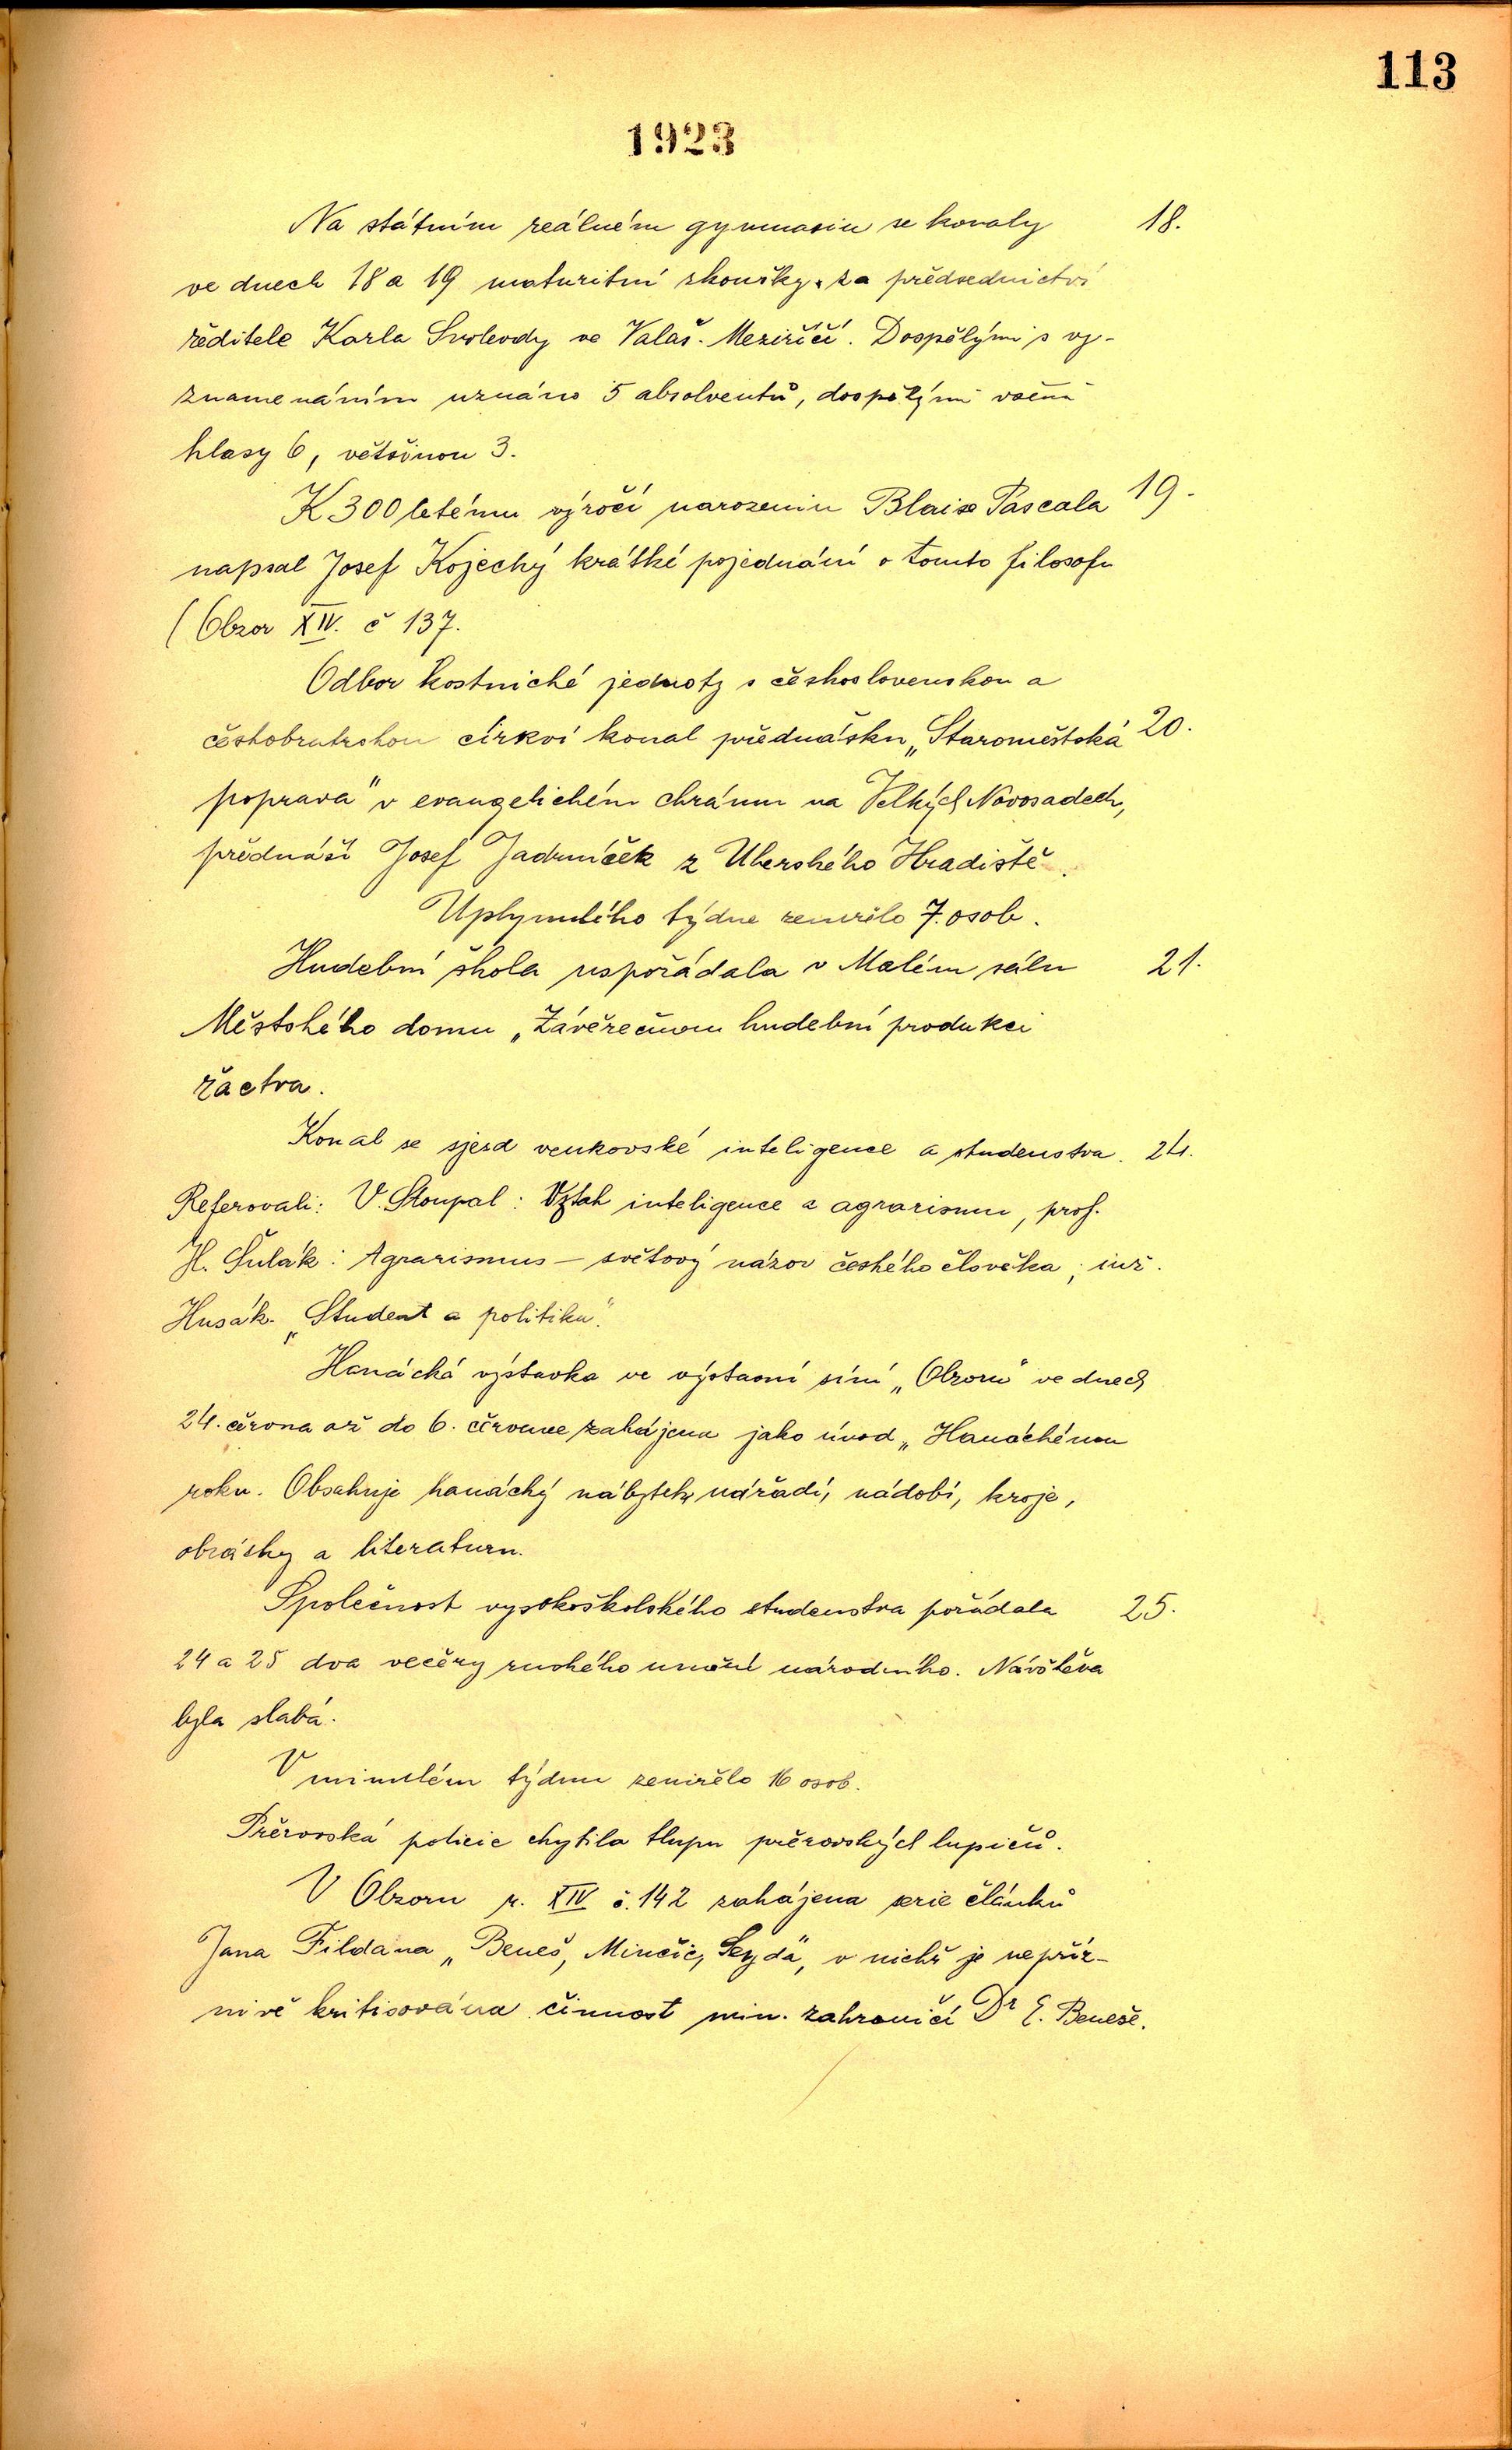 113
1923
Na státním reálném gymnasiu se konaly 18.
ve dnech 18 a 19 maturitní zkoušky za předsednictví
ředitele Karla Svobody ve Valaš. Meziříčí. Dospělými s vy-
znamenáním uznáno 5 absolventů, dospělými všemi
hlasy 6, většinou 3.
K 300 letému výročí narozenin Blaise Pascala 19.
napsal Josef Kojechý krátké pojednání o tomto filosofu
(Obzor XIV. č 137.
Odbor kostnické jednoty s československou a
českobratrskou církví konal přednášku „Staroměstská 20.
poprava" v evangelickém chrámu na Velkých Novosadech,
přednáší Josef Jadrníček z Uherského Hradiště.
Uplynulého týdne zemřelo 7. osob.
Hudební škola uspořádala v Malém sálu 21.
Městského domu „Závěrečnou hudební produkci
žactva.
Konal se sjezd venkovské inteligence a studenstva. 24.
Referovali: V. Stoupal: Vztah inteligence a agrarismu, prof.
H. Šulák: Agrarismus – světový názor českého člověka; inž.
Husák. „Student a politika".
Hanácká výstavka ve výstavní síni „Obzoru" ve dnech
24. června až do 6. července zahájena jako úvod „Hanáckému
roku. Obsahuje hanácký nábytek, nářadí, nádobí, kroje,
obrázky a literaturu.
Společnost vysokoškolského studenstva pořádala 25.
24 a 25 dva večery ruského umění národního. Návštěva
byla slabá.
V minulém týdnu zemřelo 16 osob.
Přerovská policie chytila tlupu přerovských lupičů.
V Obzoru r. XIV č. 142 zahájena serie článků
Jana Fildána „Beneš, Minčić, Seyda", v nichž je nepříz-
nivě kritisována činnost min. zahraničí Dr E. Beneše.